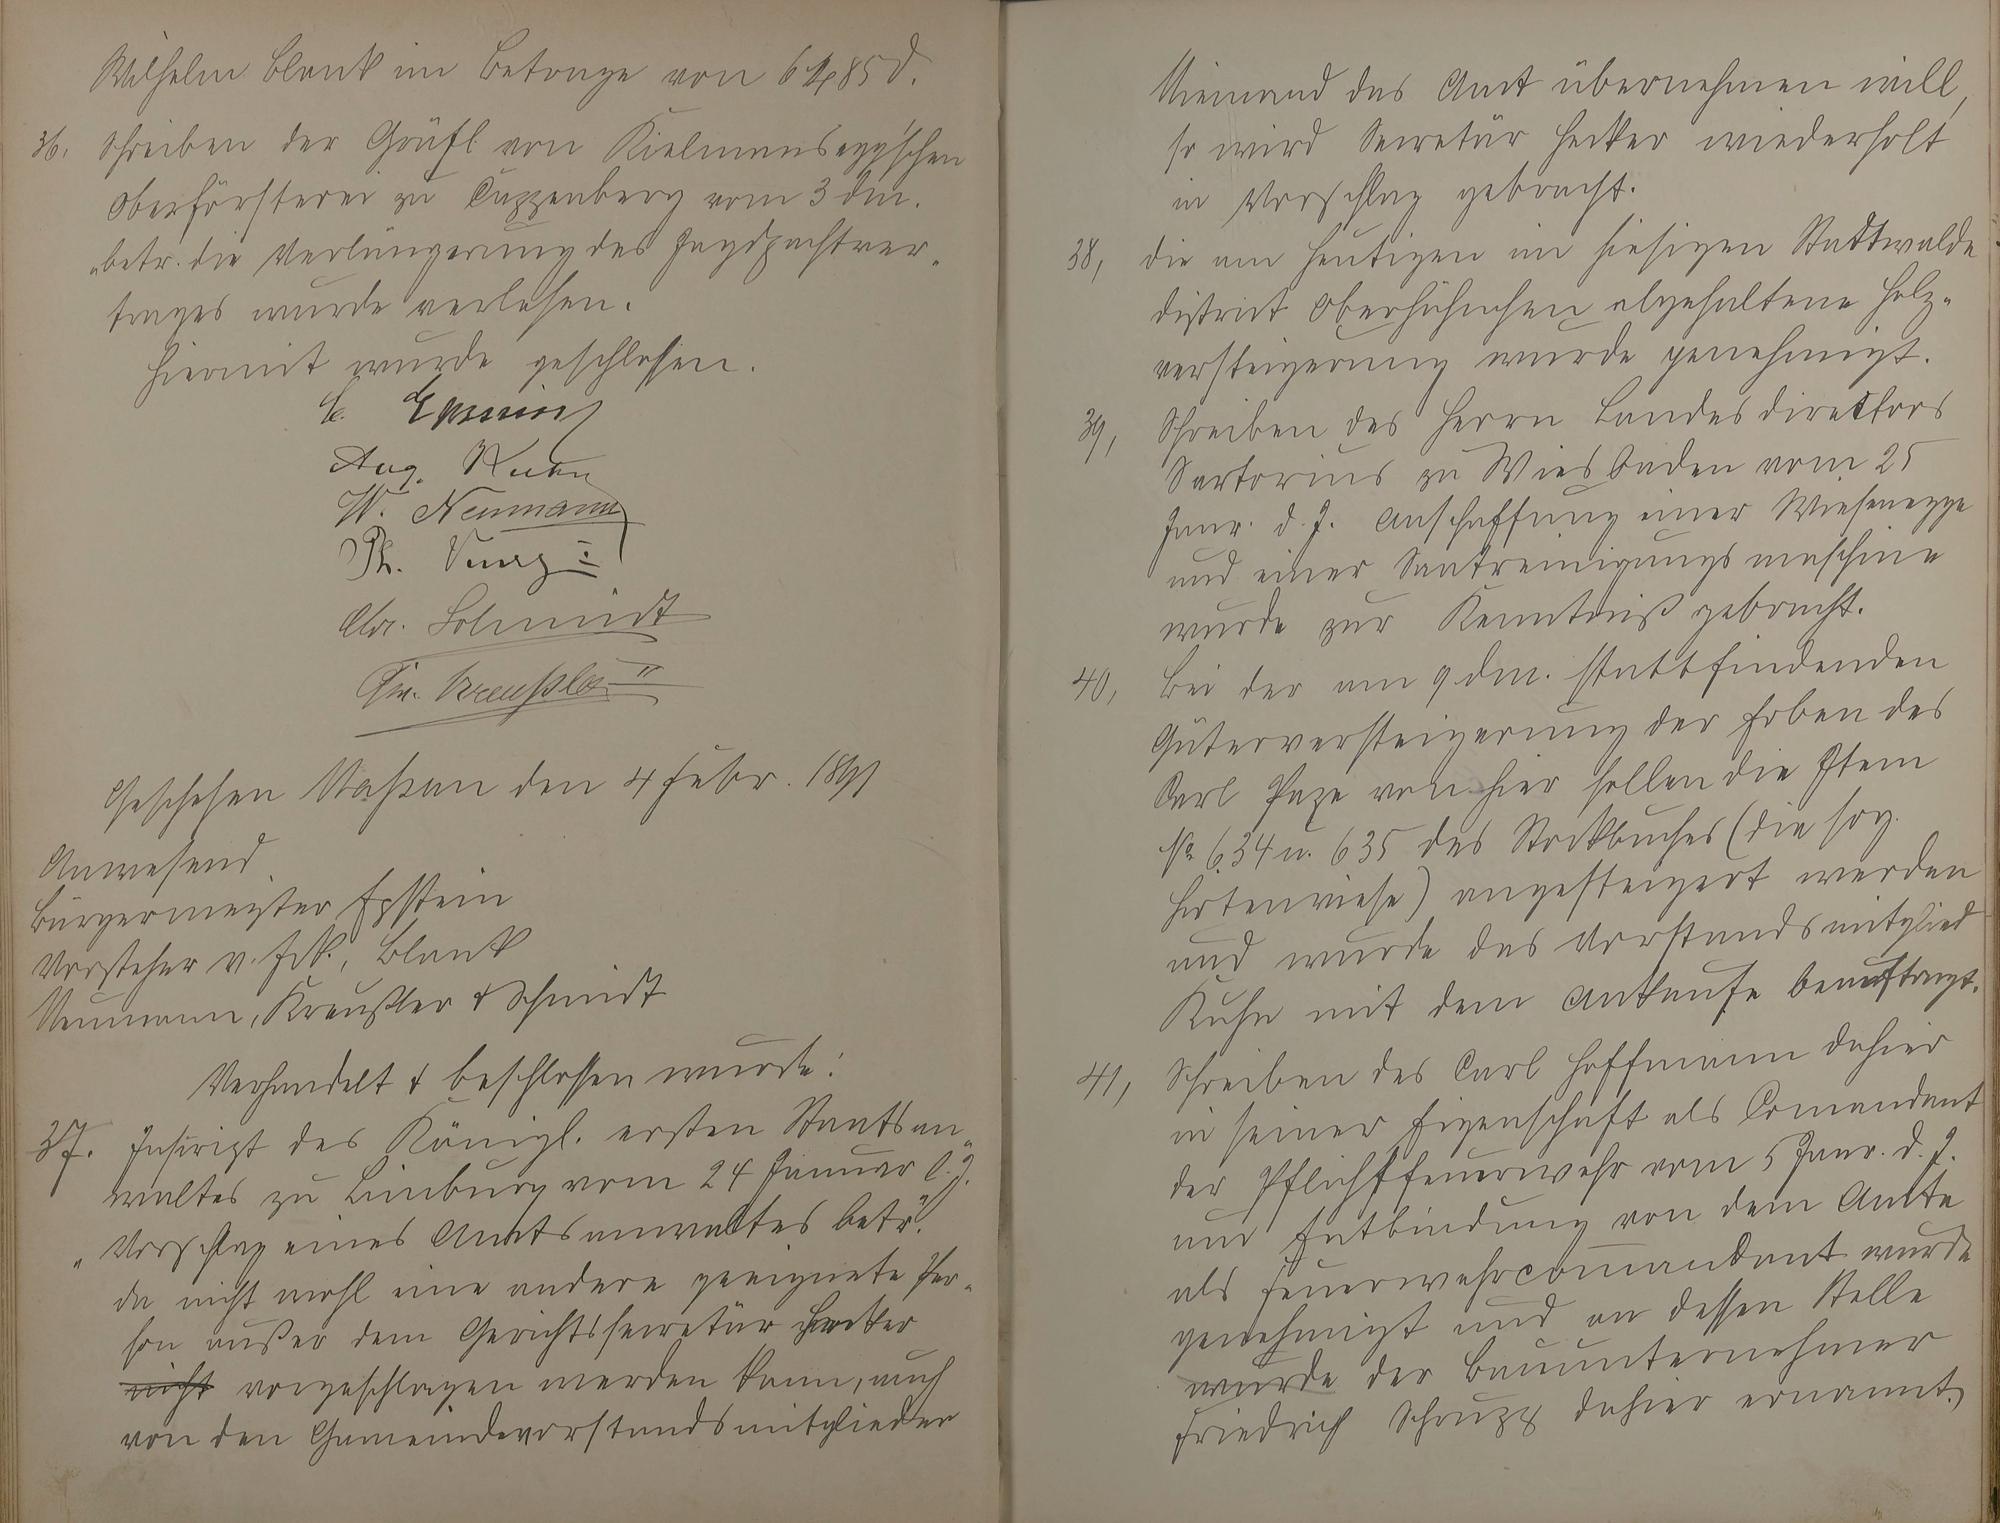 Wilhelm Blank im Betrage von 6 M 85 d.
36. Schreiben der Gräfl von Kielmannsegg'schen
Oberförsterei zu Cappenberg vom 3 dM.
"betr. die Verlängerung des Jagdpachtver-
trages wurde verlesen.
Hiermit wurde geschlossen.
C. Epstein
Aug. Kuhn
W. Neumann
Ph.
Chr. Schmidt
Fr. Kreußler
Geschehen Nassau den 4 Febr. 1891
Anwesend
Bürgermeister Epstein
Vorsteher v. Eck, Blank
Neumann, Kreußler & Schmidt
Verhandelt & beschlossen wurde:
37. Inscript des Königl. ersten Staatsan-
waltes zu Limburg vom 24 Januar l. J.
"Vorschlag eines Amtsanwaltes betr."
da nicht wohl eine andere geeignete Per-
son außer dem Gerichtssecretär Hecker
nicht vorgeschlagen werden kann, auch
von den Gemeindevorstandsmitglieder
Niemand das Amt übernehmen will,
so wird Secretär Hecker wiederholt
in Vorschlag gebracht.
38, die am Heutigen im hiesigen Stadtwalde
district Oberhähnchen abgehaltene Holz-
versteigerung wurde genehmigt.
39, Schreiben des Herrn Landesdirektors
Sartorius zu Wiesbaden vom 25
Janr. d. J. Anschaffung einer Wiesenegge
und einer Saatreinigungsmaschine
wurde zur Kenntniß gebracht.
40, Bei der am 9 dM. stattfindenden
Güterversteigerung der Erben des
Carl Paze von hier sollen die Item
No 634 u. 635 des Stockbuches (die sog.
Hirtenwiese) angesteigert werden
und wurde das Vorstandsmitglied
Kuhn mit dem Ankaufe beauftragt.
41, Schreiben des Carl Hoffmann dahier
in seiner Eigenschaft als Comandant
der Pflichtfeuerwehr vom 5 Janr. d. J.
um Entbindung von dem Amte
als Feuerwehrcom̅andant wurde
genehmigt und an dessen Stelle
wurde der Bauunternehmer
Friedrich dahier ernannt.